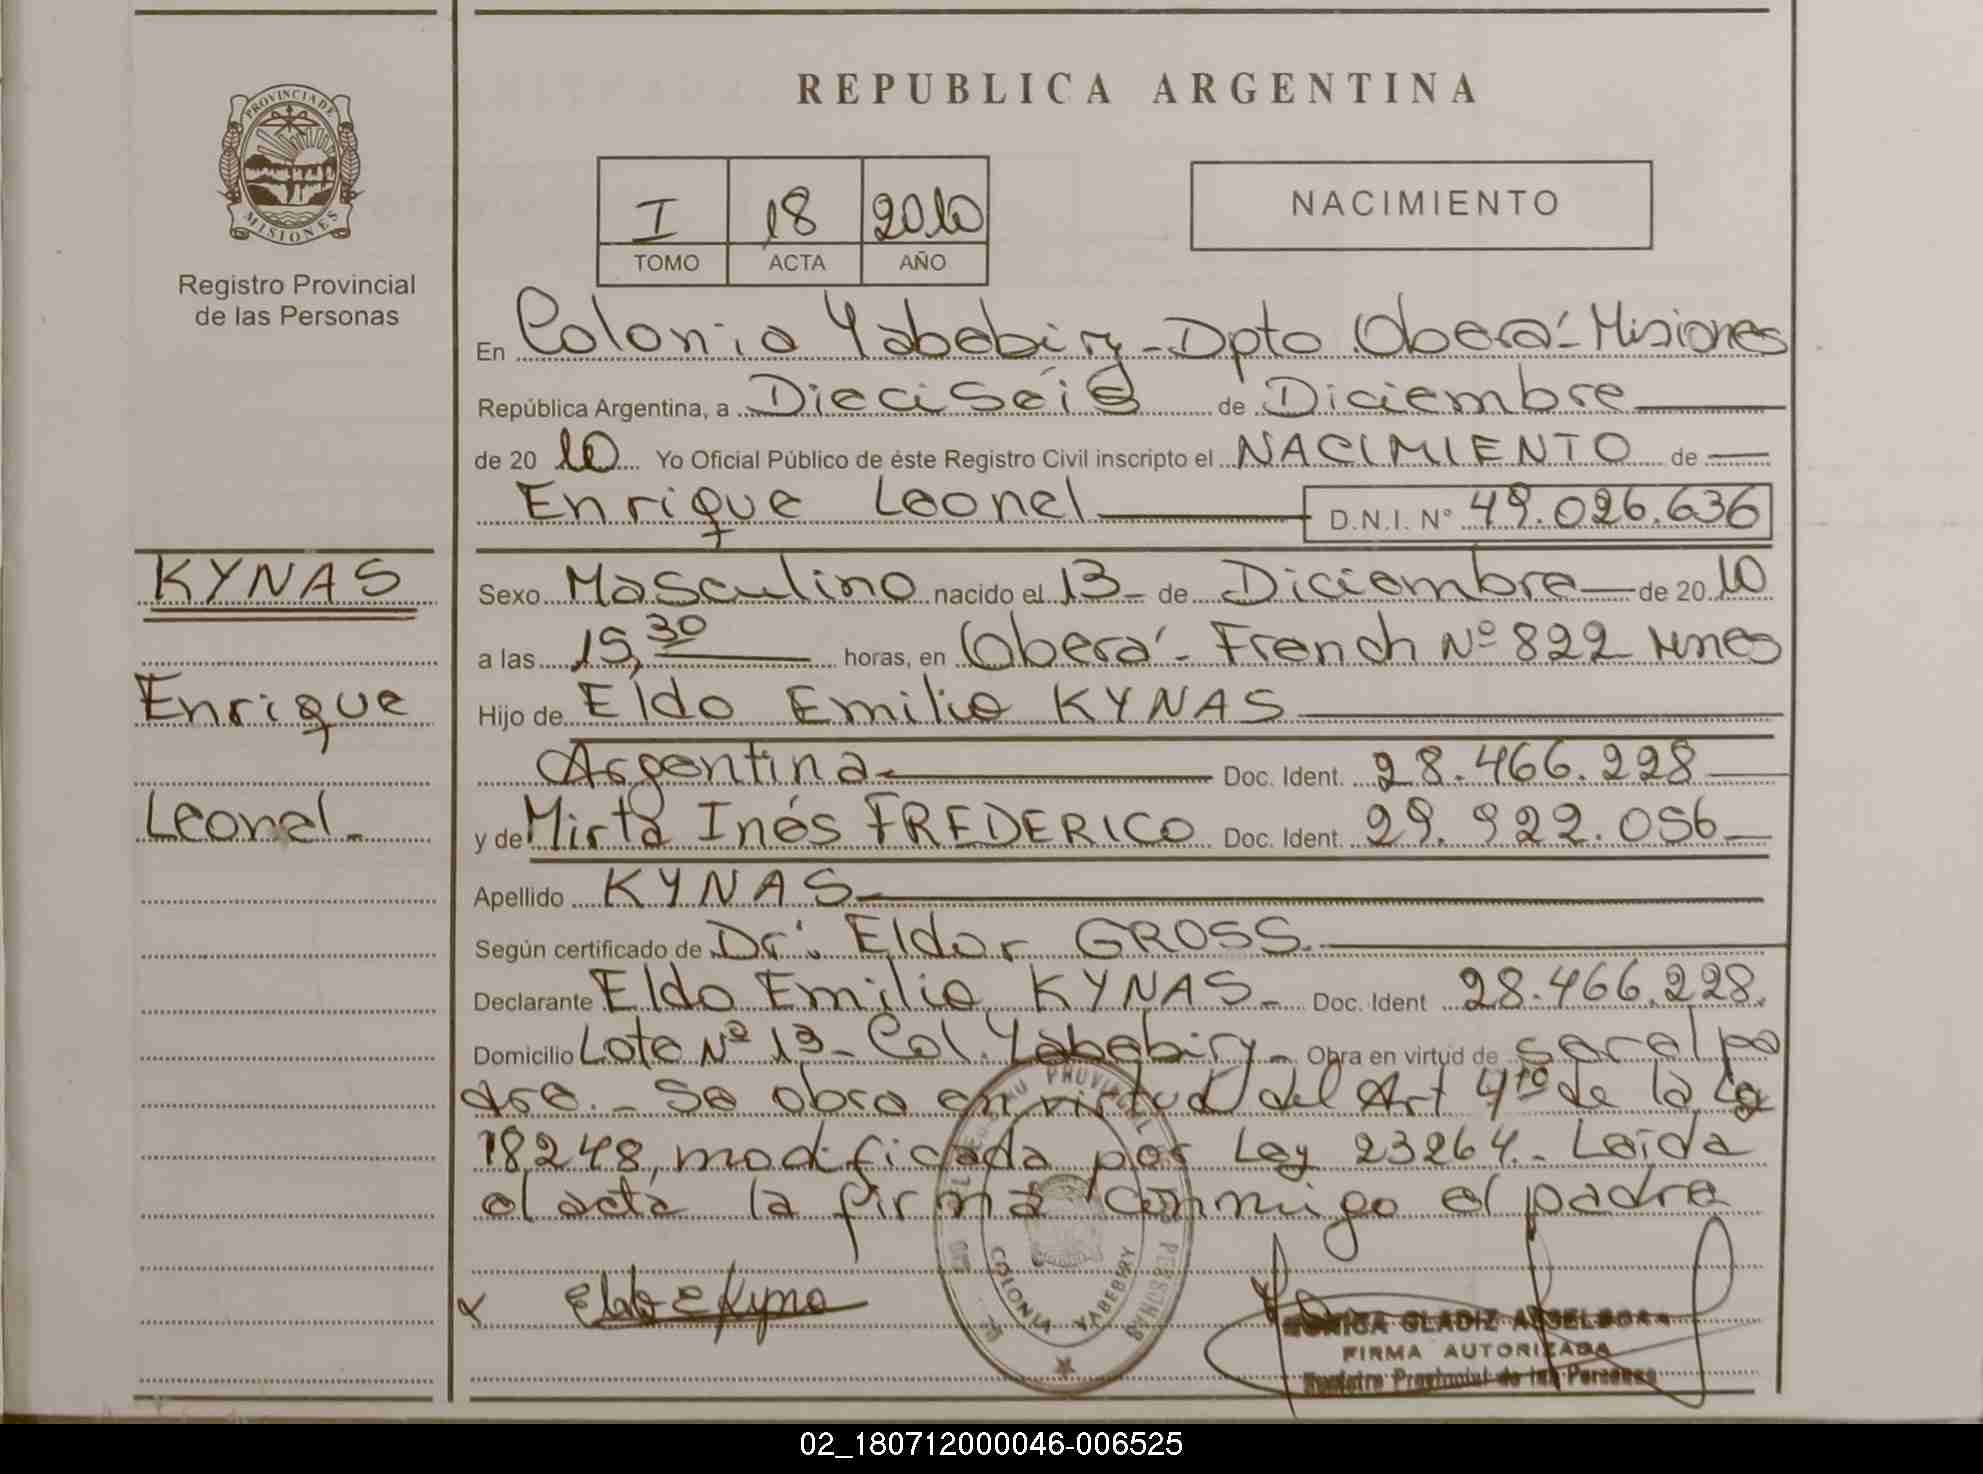 REPUBLICA ARGENTINA
PROVINCIA DE
MISIONES
Registro Provincial
de las Personas
I 18 2010
TOMO ACTA AÑO
NACIMIENTO
En Colonia Yabebiry - Dpto Oberá - Misiones
República Argentina, a DieciSéis de Diciembre
de 20 10 Yo Oficial Público de éste Registro Civil inscripto el NACIMIENTO de
Enrique Leonel D.N.I. Nº 49.026.636
KYNAS
Enrique
Leonel.
Sexo Masculino nacido el 13 de Diciembre de 20 10
a las 15,30 horas, en Oberá - French Nº 822 Mnes
Hijo de Eldo Emilio KYNAS
Argentina Doc. Ident. 28.466.228
y de Mirta Inés FREDERICO Doc. Ident. 29.922.056
Apellido KYNAS
Según certificado de Dr. Eldor GROSS.
Declarante Eldo Emilio KYNAS. Doc. Ident 28.466.228.
Domicilio Lote Nº 13 - Col. Yabebiry - Obra en virtud de ser el pa
dre. - Se obra en virtud del Art 4to de la Ley
18248, modificada por Ley 23264. - Leída
el acta la firma conmigo el padre
COLONIA YABEBIRY
FIRMA AUTORIZADA
Registro Provincial de las Personas
02_180712000046-006525